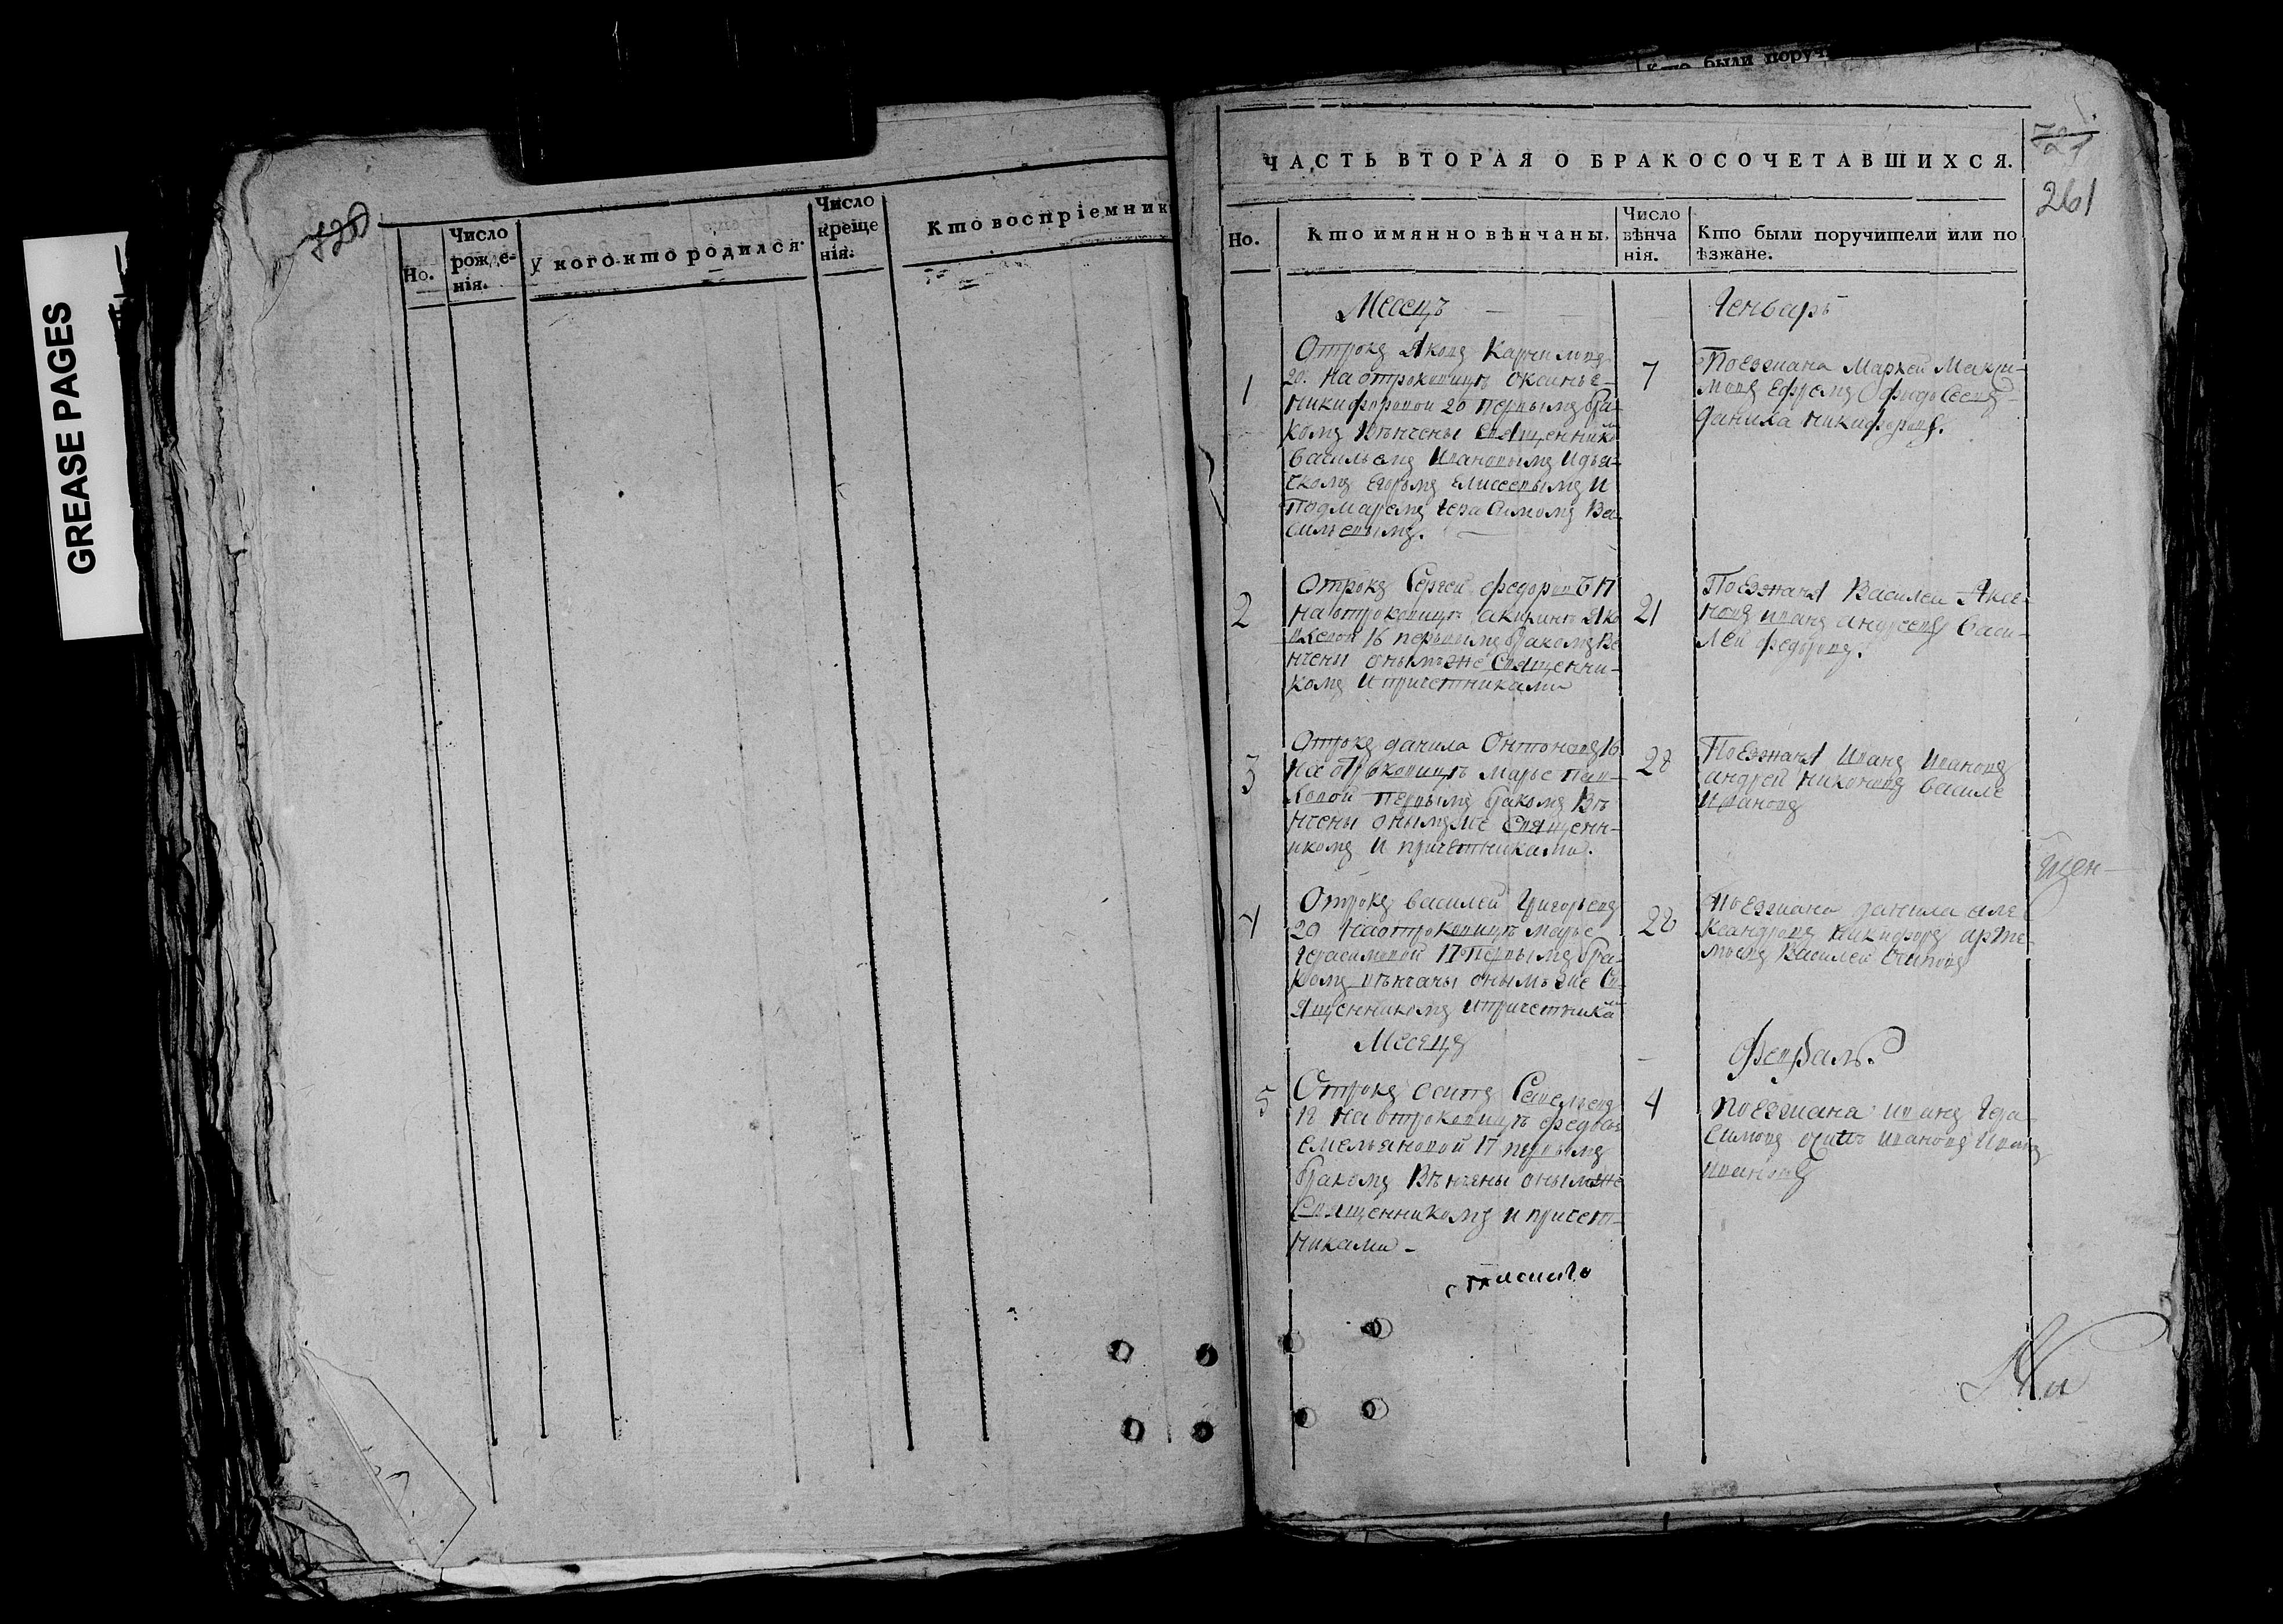 GREASE PAGES
720
Но.
Число рожде-
нія.
у кого кто родился.
Число
креще
нія.
Кто воспріемник
Кто были поручи
ЧАСТЬ ВТОРАЯ О БРАКОСОЧЕТАВШИХСЯ.
721
261
Но.
Кто имянно вѣнчаны.
Число
вѣнча
нія.
Кто были поручители или по
ѣзжане.
Месецъ
Генварь
1
Отрокъ Яковъ
20. на отроковицѣ Оксинье
Никифоровой 20 первымъ бра-
комъ венчены священнико
васильемъ Ивановымъ и дья-
чкомъ Егоромъ Елисеевымъ и
понамаремъ Герасимомъ Ва-
сильевымъ.
7
Поезжана Мархей Макси-
мовъ Ефремъ Офидосеевъ
данила никифоровъ.
2
Отрокъ Сергей федоровъ 17
на отроковицѣ акилинѣ Яко
влевой 16 первымъ бракомъ ве
нчены онымъ же священни-
комъ и причетниками
21
Поезжаня Василеи Аксе-
новъ иванъ андреевъ васи-
леи федоровъ.
3
Отрокъ данила Онтоновъ 16
на отроковицѣ марье пав-
ловой первымъ бракомъ вѣ
нчены онымже священ-
икомъ и причетниками.
28
Поезжаня Иванъ Ивановъ
андреи никоновъ василе
Ивановъ
щен-
4
Отрокъ василеи Григорьевъ
20 на отроковицѣ марье
Герасимовой 17 первымъ бра-
комъ вѣнчаны онымъ же св
ященникомъ и причетника
28
поезжана данила але
ксандровъ никифоръ арте-
моевъ Василеи Осиповъ
Месяцъ
Февраль.
5
Отрокъ осипъ Савельевъ
18 на отроковицѣ федосье
емельяновой 17 первымъ
бракомъ вѣнчены онымже
священникомъ и причет-
никами
4
поезжана иванъ Гера-
симовъ осипъ ивановъ иванъ
ивановъ